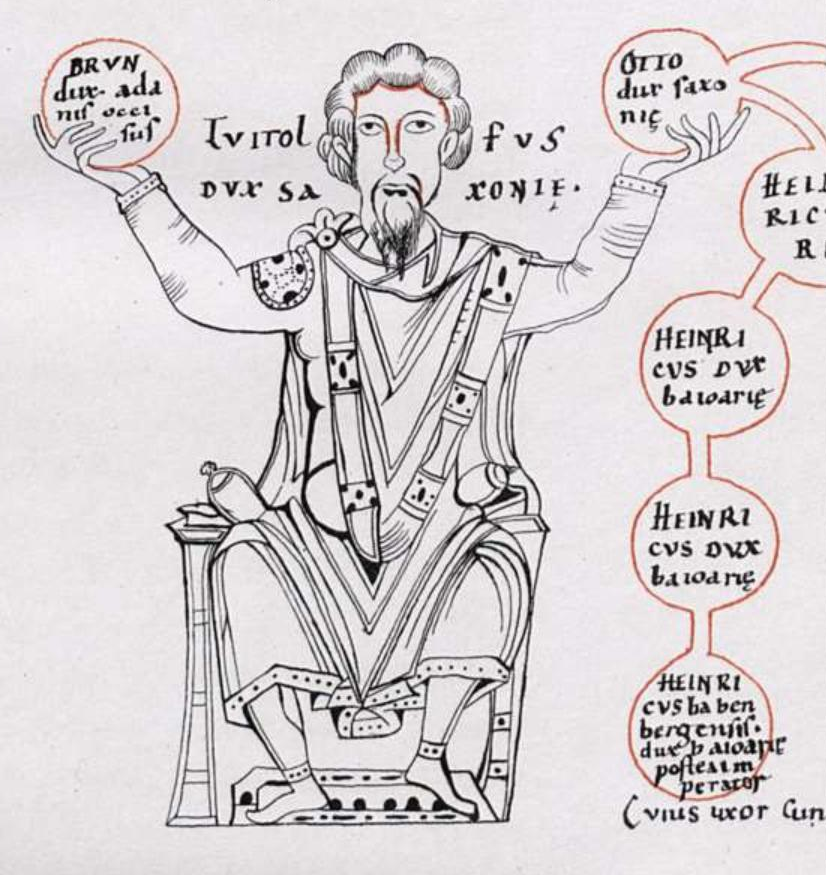 BRVN
dux· ada
nis occi
sus
LVITOL FVS
DVX SA XONIĘ.
OTTO
dux saxo
nię
HEI
RIC
R
HEINRI
CVS DVX
baioarię
HEINRI
CVS DVX
baioarię
HEINRI
CVS baben
bergensis·
dux baioarię
postea im
perator
Cvius uxor Cun